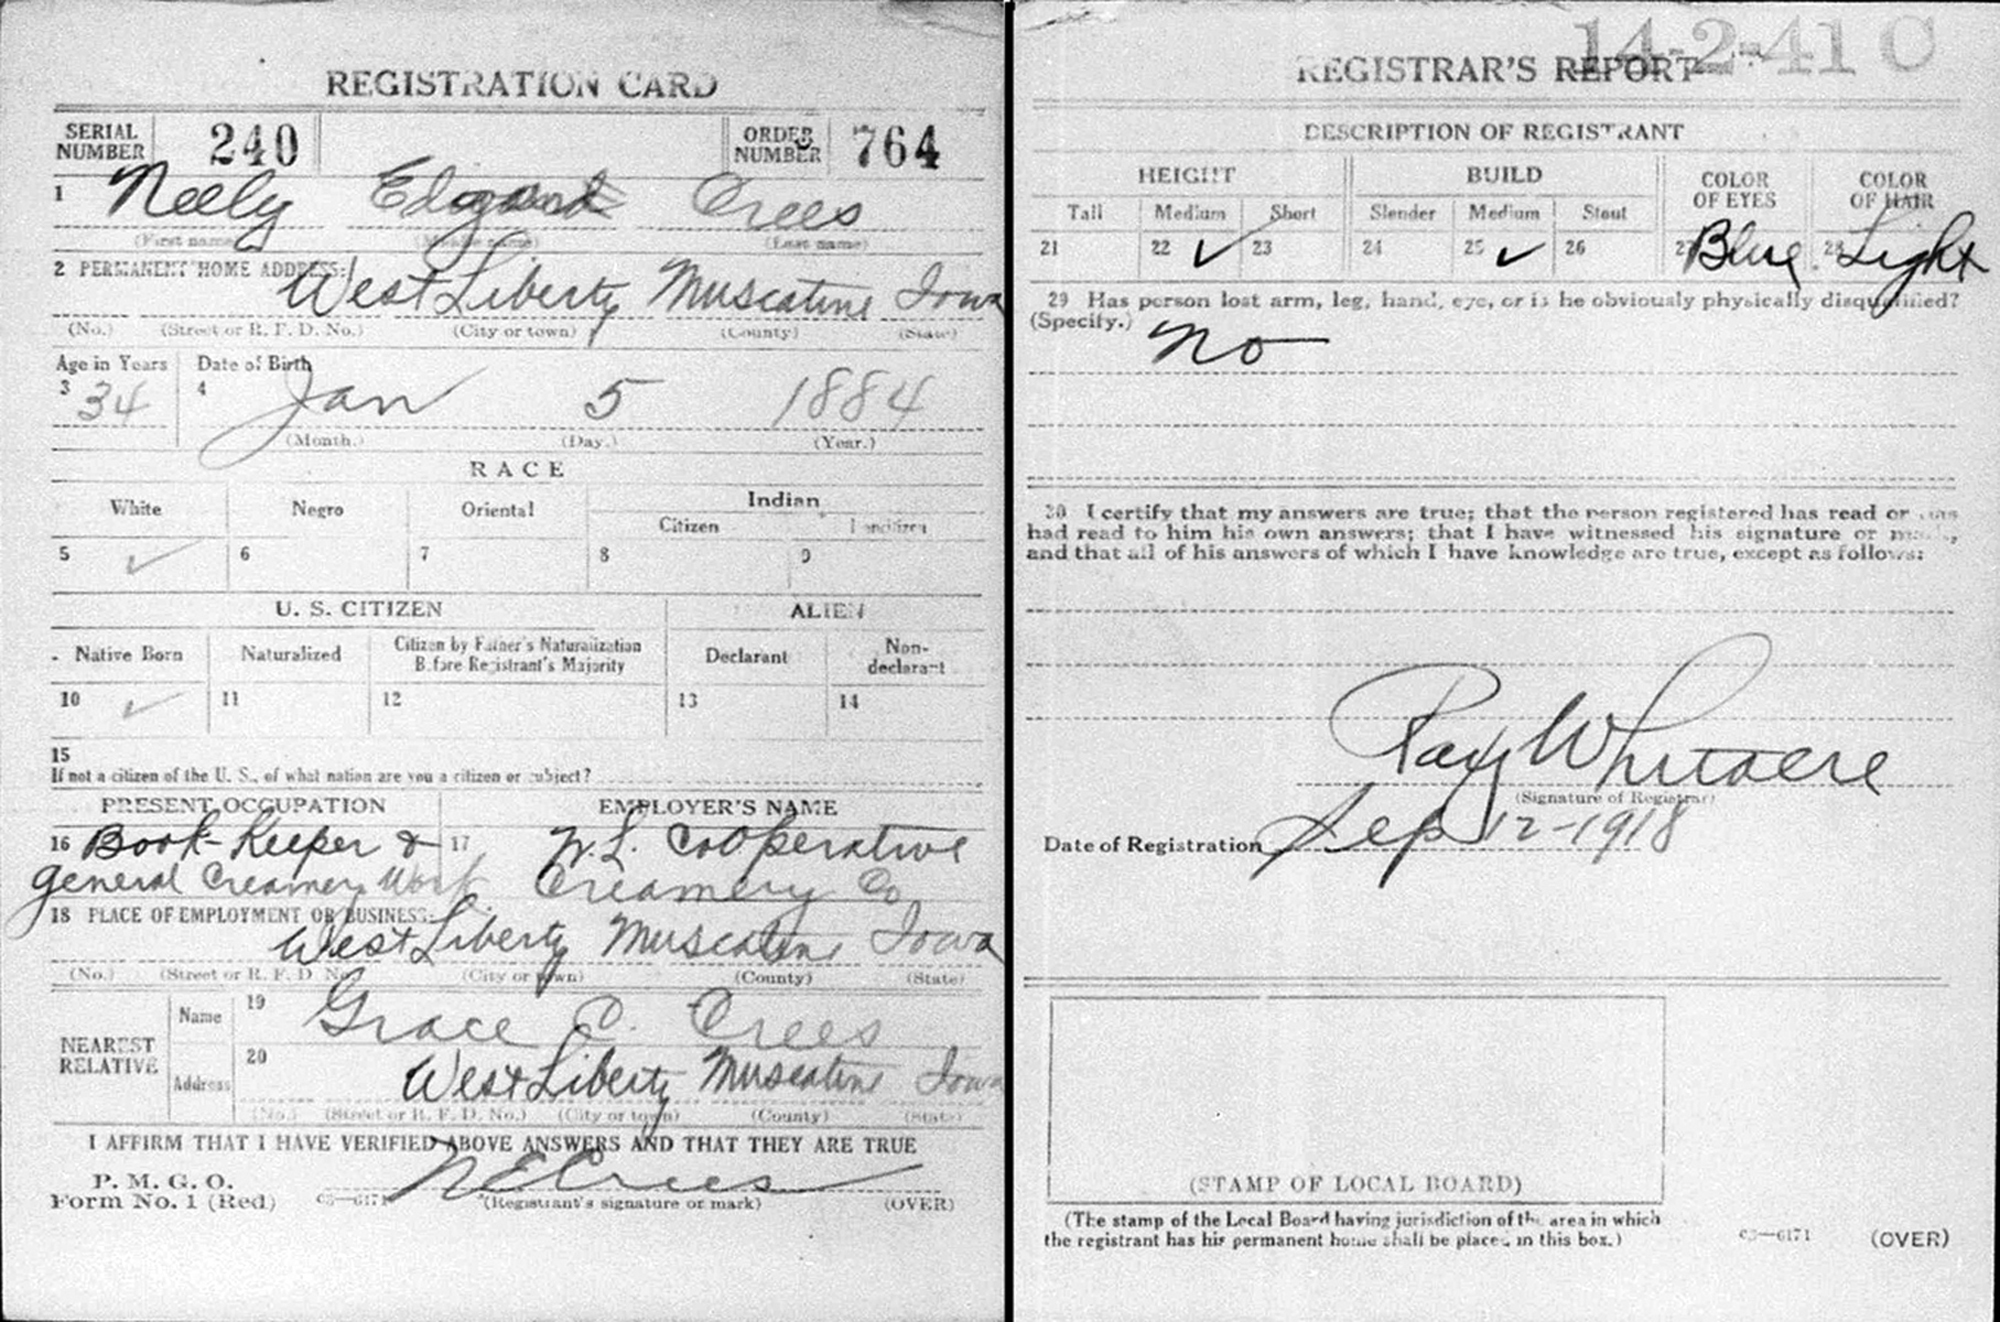 REGISTRATION CARD
SERIAL NUMBER 240 ORDER NUMBER 764
1 Neely Crees
(First name) (Middle name) (Last name)
2 PERMANENT HOME ADDRESS:
West Liberty Muscatine Iowa
(No.) (Street or R. F. D. No.) (City or town) (County) (State)
Age in Years Date of Birth
3 34 4 Jan 5 1884
(Month.) (Day.) (Year.)
RACE
White Negro Oriental Indian
Citizen Noncitizen
5 ✓ 6 7 8 9
U. S. CITIZEN ALIEN
Native Born Naturalized Citizen by Father's Naturalization Before Registrant's Majority Declarant Non-declarant
10 ✓ 11 12 13 14
15
If not a citizen of the U. S., of what nation are you a citizen or subject?
PRESENT OCCUPATION EMPLOYER'S NAME
16 Book-Keeper & 17 W. L. Cooperative
General Creamery Work Creamery Co
18 PLACE OF EMPLOYMENT OR BUSINESS:
West Liberty Muscatine Iowa
(No.) (Street or R. F. D. No.) (City or town) (County) (State)
NEAREST RELATIVE
Name 19 Grace C. Crees
Address 20 West Liberty Muscatine Iowa
(No.) (Street or R. F. D. No.) (City or town) (County) (State)
I AFFIRM THAT I HAVE VERIFIED ABOVE ANSWERS AND THAT THEY ARE TRUE
P. M. G. O.
Form No. 1 (Red) 03—6171 N E Crees
(Registrant's signature or mark) (OVER)
14-2-41 C
REGISTRAR'S REPORT
DESCRIPTION OF REGISTRANT
HEIGHT BUILD COLOR OF EYES COLOR OF HAIR
Tall Medium Short Slender Medium Stout
21 22 ✓ 23 24 25 ✓ 26 27 Blue 28 Light
29 Has person lost arm, leg, hand, eye, or is he obviously physically disqualified?
(Specify.) No
30 I certify that my answers are true; that the person registered has read or has
had read to him his own answers; that I have witnessed his signature or mark,
and that all of his answers of which I have knowledge are true, except as follows:
Ray Whitacre
(Signature of Registrar)
Date of Registration Sep 12-1918
(STAMP OF LOCAL BOARD)
(The stamp of the Local Board having jurisdiction of the area in which
the registrant has his permanent home shall be placed in this box.)
03—6171 (OVER)